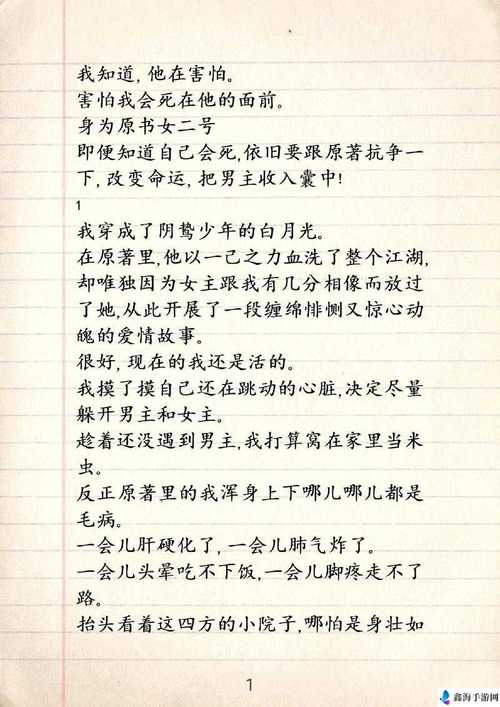 我知道, 他在害怕。
害怕我会死在他的面前。
身为原书女二号
即便知道自己会死,依旧要跟原著抗争一
下, 改变命运, 把男主收入囊中!
1
我穿成了阴鸷少年的白月光。
在原著里,他以一己之力血洗了整个江湖,
却唯独因为女主跟我有几分相像而放过
了她,从此开展了一段缠绵悱恻又惊心动
魄的爱情故事。
很好, 现在的我还是活的。
我摸了摸自己还在跳动的心脏,决定尽量
躲开男主和女主。
趁着还没遇到男主,我打算窝在家里当米
虫。
反正原著里的我浑身上下哪儿哪儿都是
毛病。
一会儿肝硬化了, 一会儿肺气炸了。
一会儿头晕吃不下饭,一会儿脚疼走不了
路。
抬头看着这四方的小院子,哪怕是身壮如
1
鑫海手游网